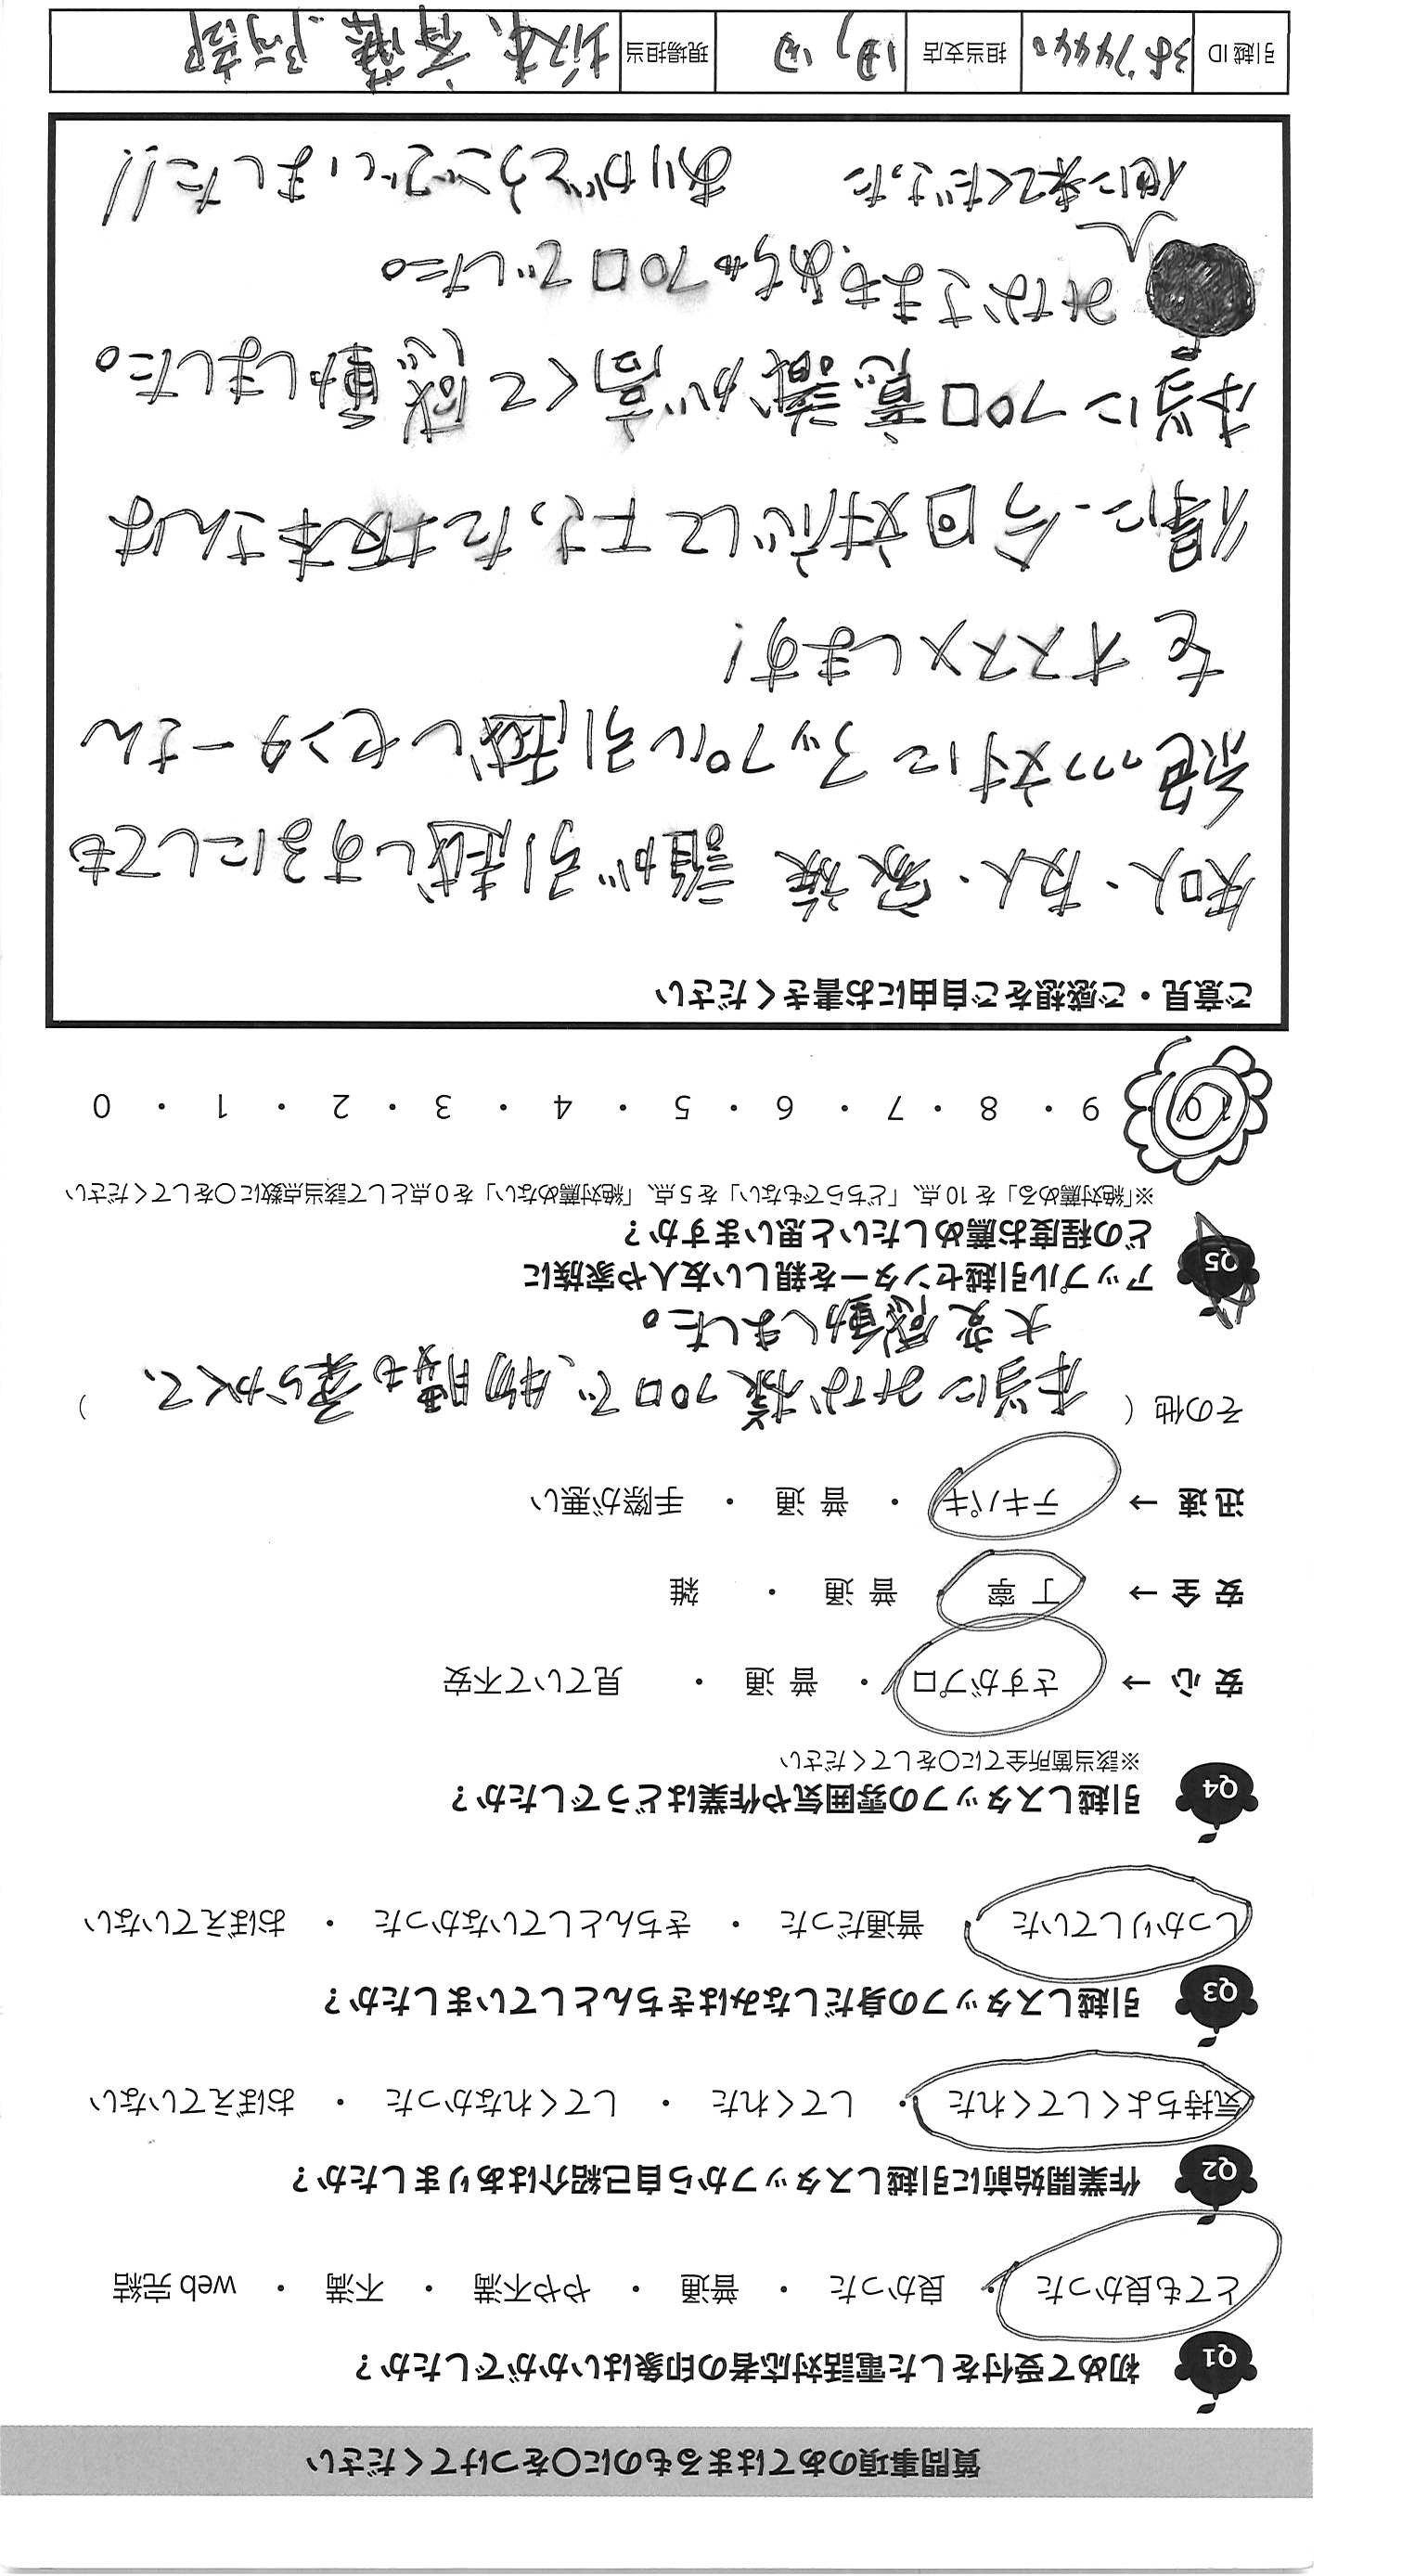 質問事項のあてはまるものに○をつけてください
Q1 初めて受付をした電話対応者の印象はいかがでしたか？
とても良かった ・ 良かった ・ 普通 ・ やや不満 ・ 不満 ・ web 完結
Q2 作業開始前に引越しスタッフから自己紹介はありましたか？
気持ちよくしてくれた ・ してくれた ・ してくれなかった ・ おぼえていない
Q3 引越しスタッフの身だしなみはきちんとしていましたか？
しっかりしていた ・ 普通だった ・ きちんとしていなかった ・ おぼえていない
Q4 引越しスタッフの雰囲気や作業はどうでしたか？
※該当箇所全てに○をしてください
安 心 → さすがプロ ・ 普 通 ・ 見ていて不安
安 全 → 丁 寧 ・ 普 通 ・ 雑
迅 速 → テキパキ ・ 普 通 ・ 手際が悪い
その他（ 本当にみな様プロで、物腰も柔らかくて、 ）
大変感動しました。
Q5 アップル引越センターを親しい友人や家族に
どの程度お薦めしたいと思いますか？
※「絶対薦める」を 10 点、「どちらでもない」を 5 点、「絶対薦めない」を 0 点として該当点数に○をしてください
10 ・ 9 ・ 8 ・ 7 ・ 6 ・ 5 ・ 4 ・ 3 ・ 2 ・ 1 ・ 0
ご意見・ご感想をご自由にお書きください
知人・友人・家族 誰が引越しするにしても
絶対にアップル引越しセンターさん
をオススメします！
特に、今回対応して下さった坂本さんは
本当にプロ意識が高くて感動しました。
みなさまもめちゃプロでした。
他に来てくださった ありがとうございました!!
引越 ID 担当支店 現場担当 坂本、斉藤、阿部